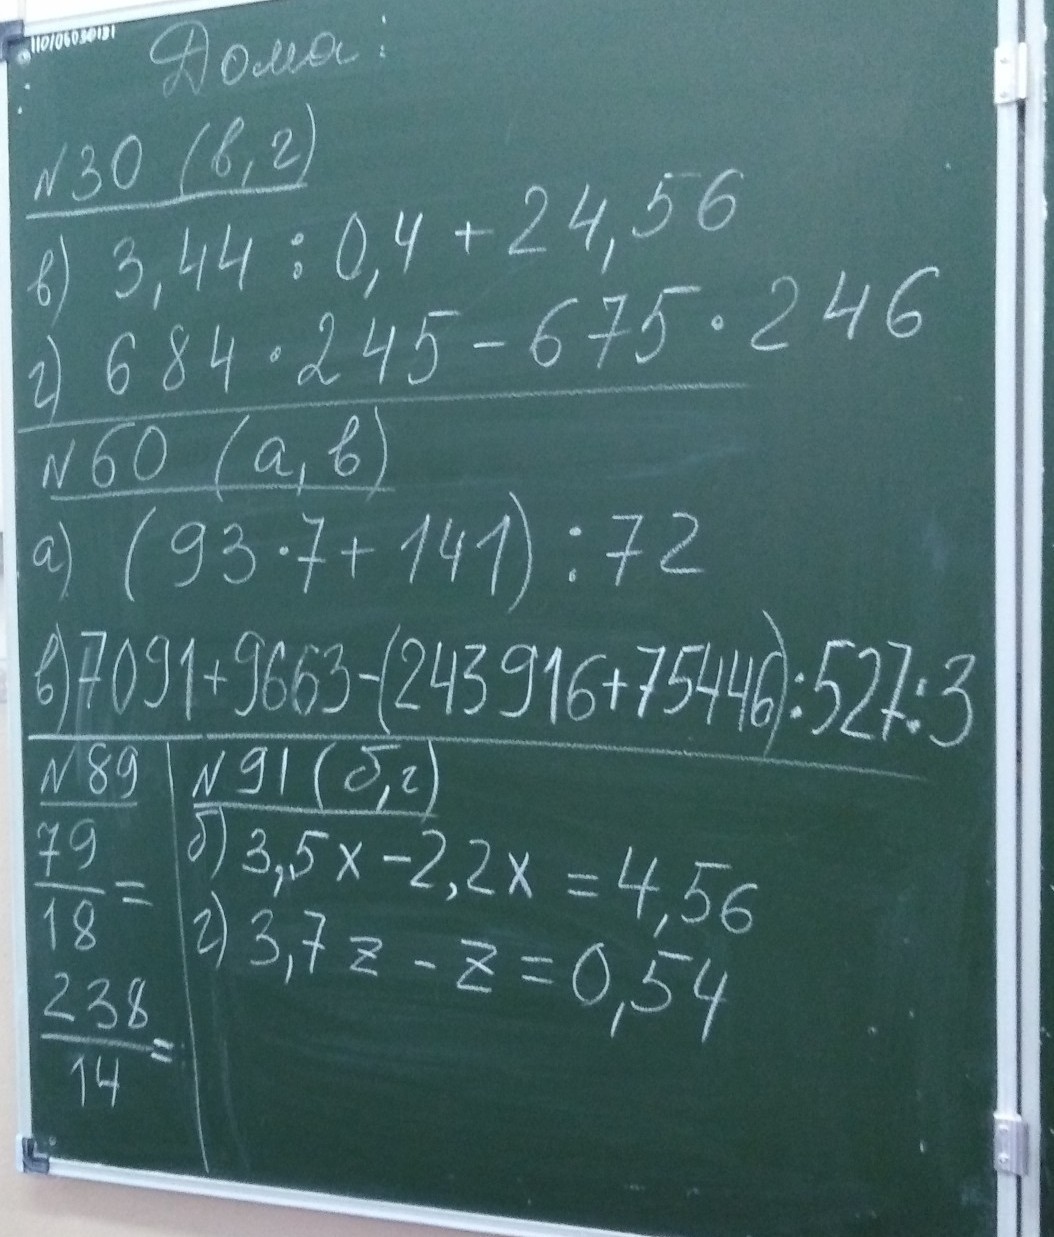 110106030131
Дома:
N30 (в, г)
в) 3,44 : 0,4 + 24,56
г) 684 · 245 - 675 · 246
N60 (а, в)
а) (93 · 7 + 141) : 72
в) 7091 + 9663 - (243916 + 75446) : 527 : 3
N89
79/18 =
238/14 =
N91 (б, г)
б) 3,5x - 2,2x = 4,56
г) 3,7z - z = 0,54